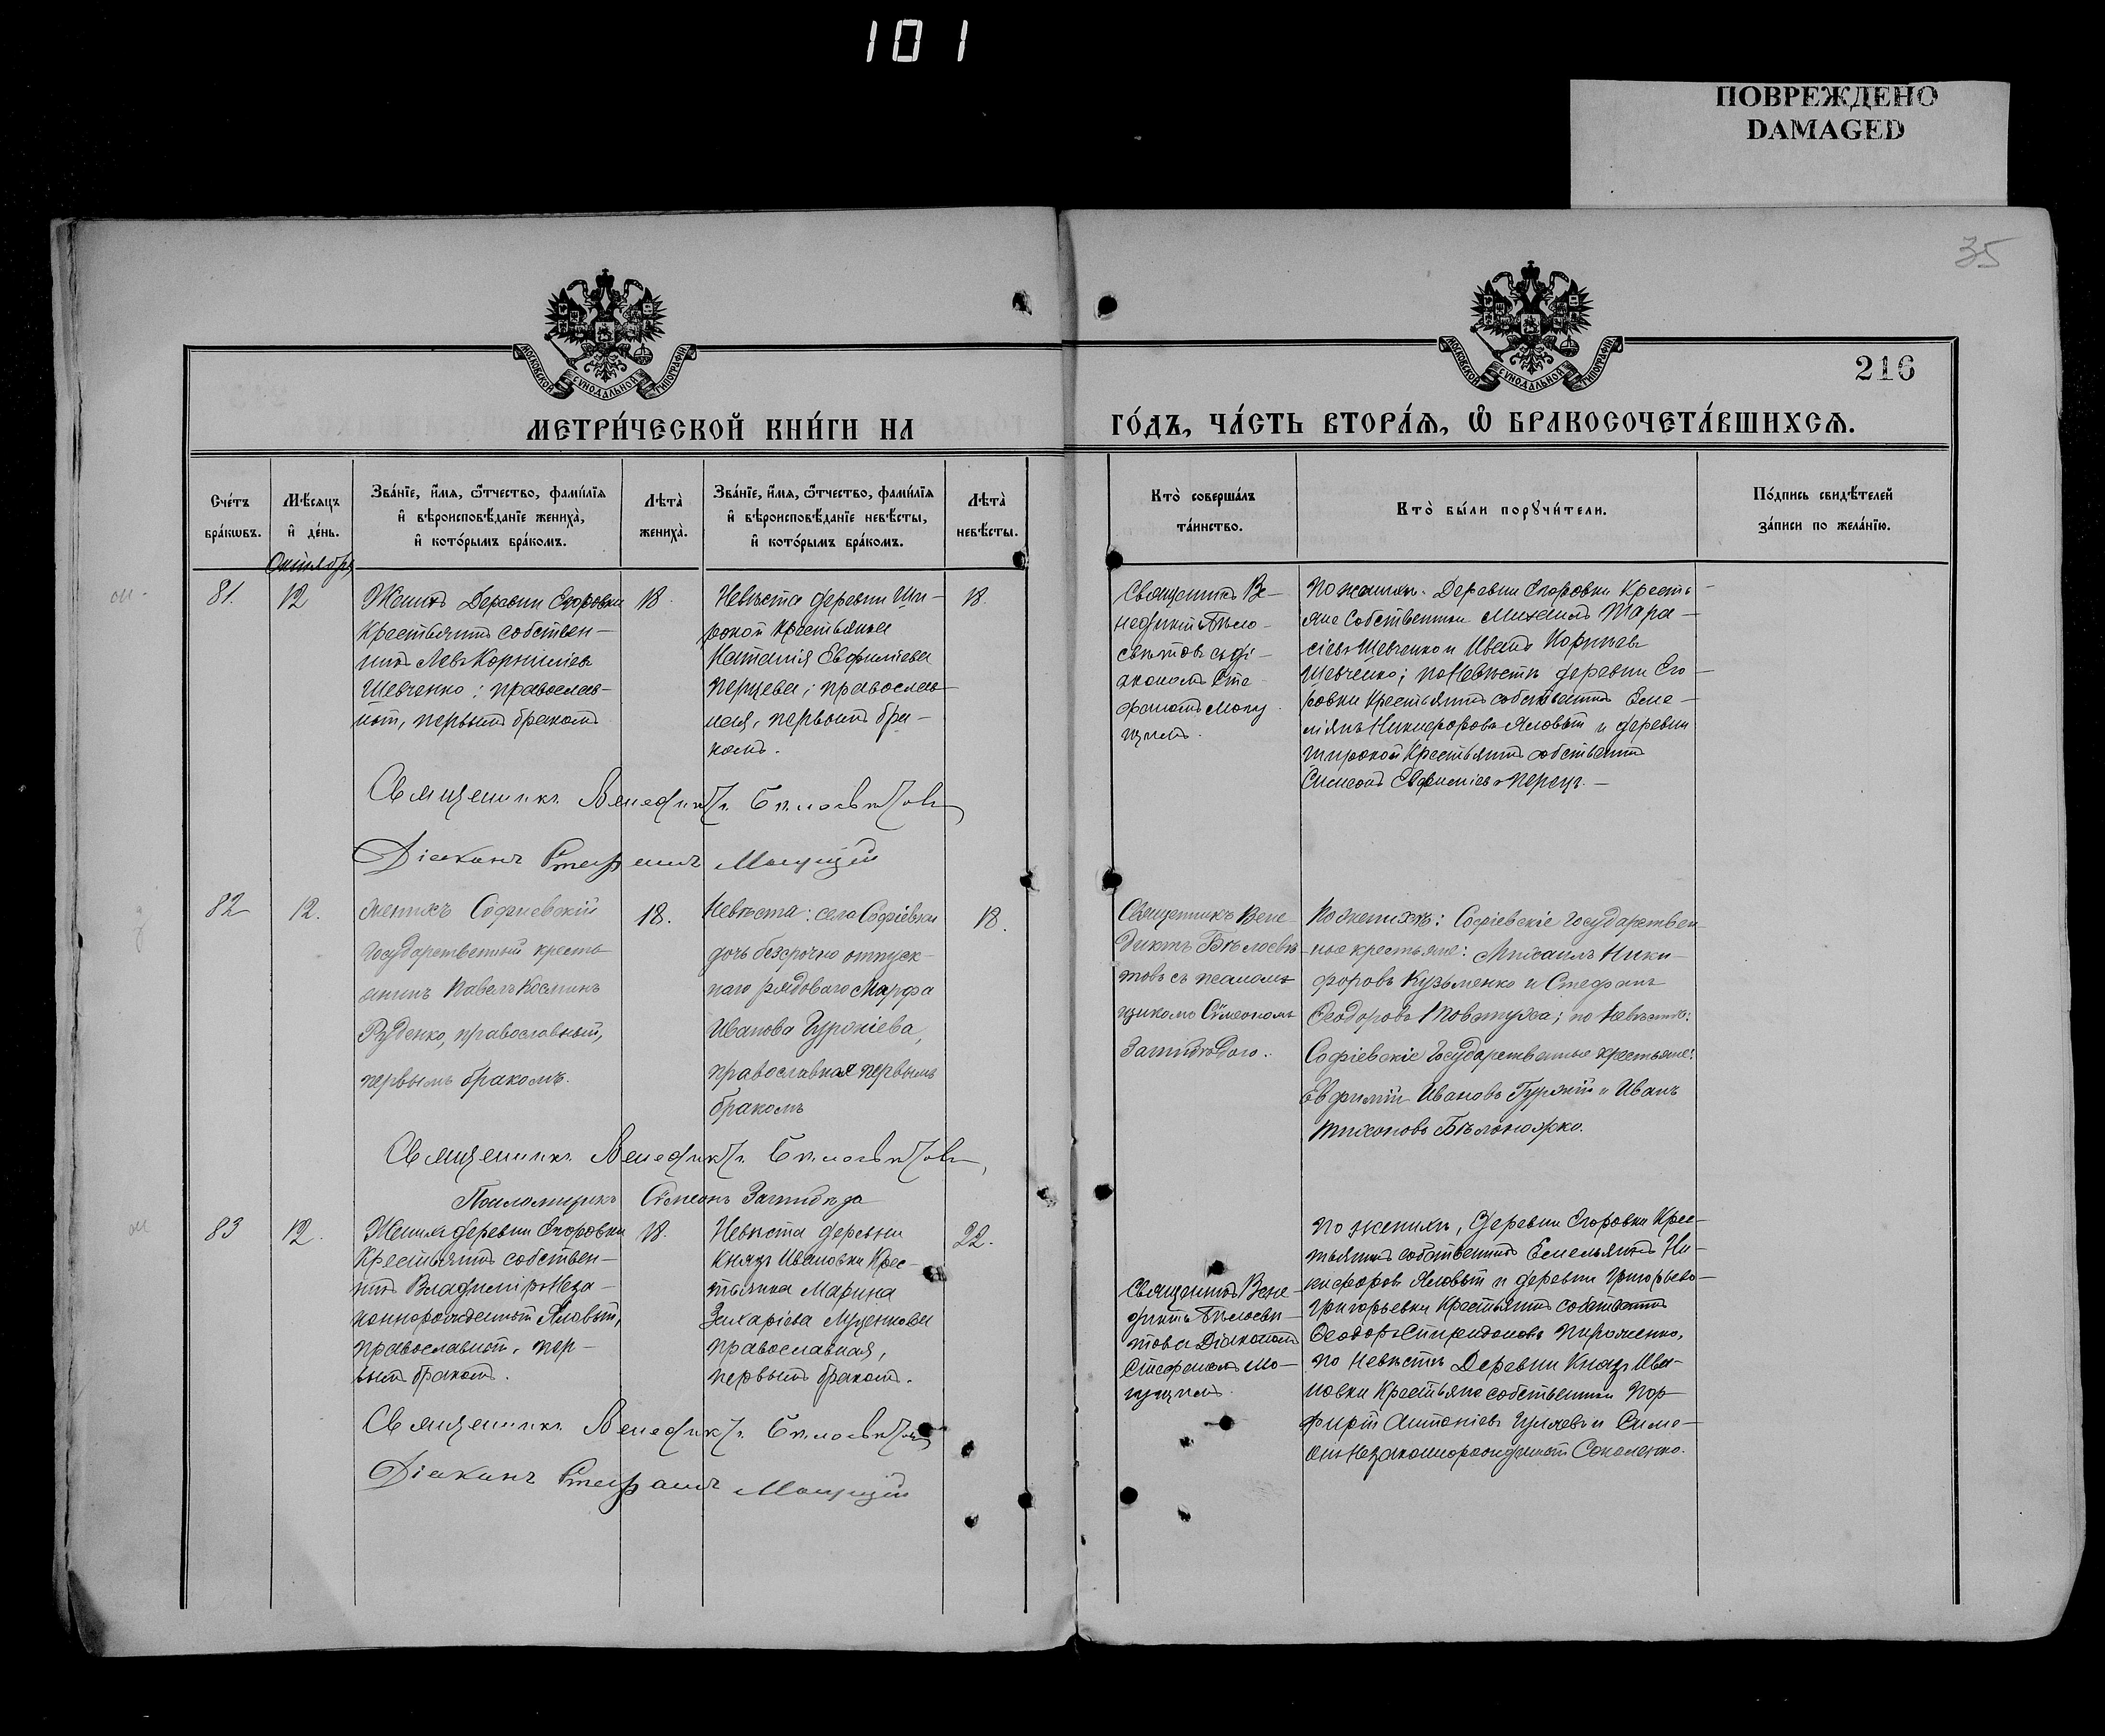 101
ПОВРЕЖДЕНО
DAMAGED
35
МОСКОВСКОЙ СУНОДАЛЬНОЙ ТИПОГРАФІИ
МОСКОВСКОЙ СУНОДАЛЬНОЙ ТИПОГРАФІИ
216
МЕТРИ́ЧЕСКОЙ КНИ́ГИ НА
ГО́ДЪ, ЧА́СТЬ ВТОРА́Ѧ, Ѡ БРАКОСОЧЕТА́ВШИХСѦ.
Сче́тъ
бра́кѡвъ.
Мѣ́сяцъ
и҆ де́нь.
Зва́нїе, и҆́мя, ѻ҆́тчество, фами́лїя
и҆ вѣроисповѣ́данїе жениха̀,
и҆ кото́рымъ бра́комъ.
Лѣта̀
жениха̀.
Зва́нїе, и҆́мя, ѻ҆́тчество, фами́лїя
и҆ вѣроисповѣ́данїе невѣ́сты,
и҆ кото́рымъ бра́комъ.
Лѣта̀
невѣ́сты.
Кто̀ соверша́лъ
та́инство.
Кто̀ бы́ли порꙋчи́тели.
По́дпись свидѣ́телей
за́писи по жела́нїю.
Октября
81.
12
Женихъ Деревни Егоровки
Крестьянинъ собствен-
никъ Левъ Корниліевъ
Шевченко; православ-
ный, первымъ бракомъ
18.
Невѣста деревни Ши-
рокой Крестьянка
Наталія Евфиміева
Перцева; православ-
ная, первымъ бра-
комъ.
18.
Священникъ Ве-
недиктъ Бѣло-
свѣтовъ съ ді-
акономъ Сте-
фаномъ Мощ
По женихѣ. Деревни Егоровки Кресть-
яне Собственники Михаилъ Тара-
сіевъ Шевченко и Иванъ
Шевченко; по Невѣстѣ деревни Его-
ровки Крестьянинъ собственникъ Еме-
ліянъ Никифоровъ Яловый и деревни
Широкой Крестьянинъ собственникъ
Симеонъ Евфиміевъ Перецъ.-
Священникъ Венедиктъ Бѣлосвѣтовъ
Діаконъ Стефанъ
82
12.
женихъ Софіевскій
Государственный кресть-
янинъ Павелъ Косминъ
Руденко, православный,
первымъ бракомъ.
18.
Невѣста: села Софіевки
дочь безсрочно отпуск-
наго рядоваго Марфа
Иванова Гуржіева,
православная первымъ
бракомъ
18.
Священникъ Вене-
диктъ Бѣлосвѣ-
товъ съ псалом-
щикомъ Сѵмеономъ
По женихѣ: Софіевскіе Государствен-
ные крестьяне: Михаилъ Ники-
форовъ Кузьменко и Стефанъ
Ѳеодоровъ Товстуха; по Невѣстѣ:
Софіевскіе Государственные крестьяне:
Евфимій Ивановъ Гуржій и Иванъ
Тихоновъ Бѣлоножко.
Священникъ Венедиктъ Бѣлосвѣтовъ,
Псаломщикъ Сѵмеонъ
83
12.
Женихъ деревни Егоровки
Крестьянинъ собствен-
никъ Владиміръ Неза-
коннорожденный Яловый,
православный, пер-
вымъ бракомъ.
18.
Невѣста деревни
Князь Ивановки Крес-
тьянка Марина
Захаріева Луценкова
православная,
первымъ бракомъ.
22.
Священникъ Вене-
диктъ Бѣлосвѣ-
товъ съ Діакономъ
Стефаномъ Мо-
По женихѣ, Деревни Егоровки Крес-
тьянинъ собственникъ Емельянъ Ни-
кифоровъ Яловый и деревни Григорьево-
Григорьевки Крестьянинъ собственникъ
Ѳеодоръ Спиридоновъ Пироженко,
по Невѣстѣ Деревни Князь Ива-
новки Крестьяне собственники Пор-
фирій Антоніевъ Гуляевъ и Симе-
онъ Незаконнорожденный Соколенко.
Священникъ Венедиктъ Бѣлосвѣтовъ
Діаконъ Стефанъ